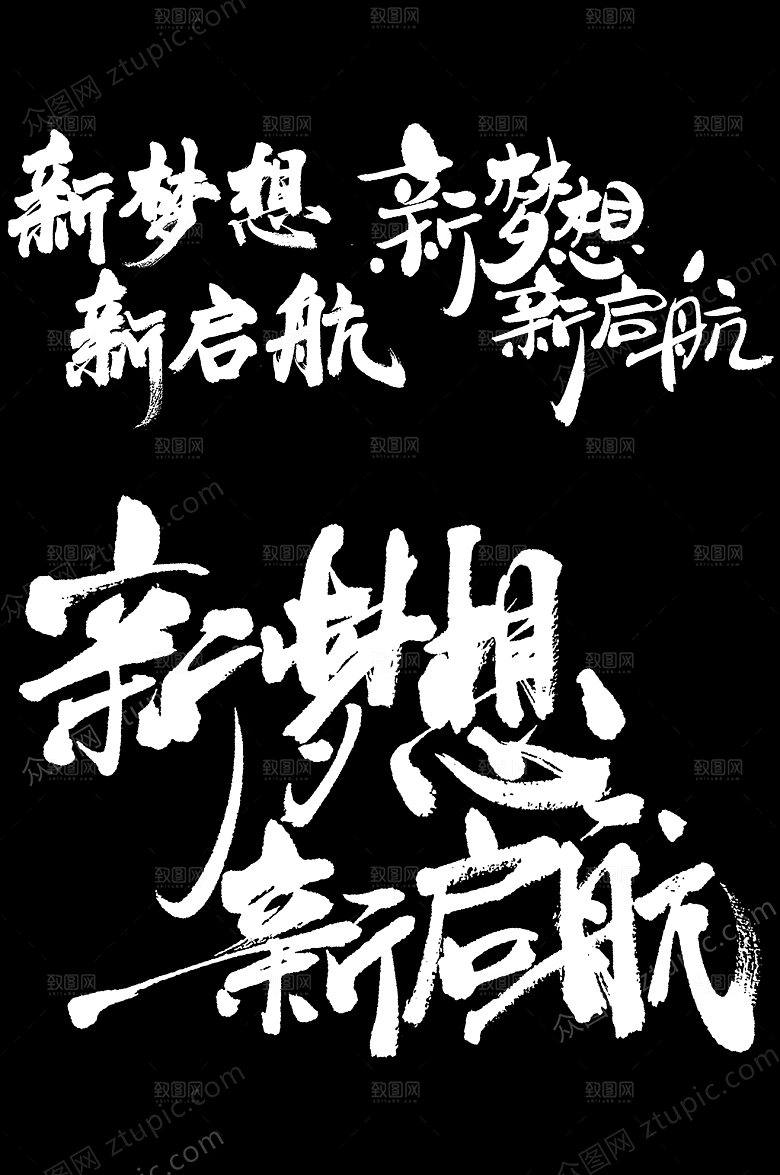 新梦想
新启航
新梦想
新启航
新梦想
新启航
众图网 ztupic.com
致图网
zhitu88.com